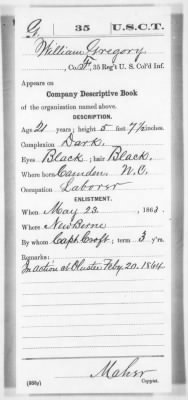 G. 35 U.S.C.T.
William Gregory
, Co. F, 35 Reg't U. S. Col'd Inf.
Appears on
Company Descriptive Book
of the organization named above.
DESCRIPTION.
Age 21 years; height 5 feet 7½ inches.
Complexion Dark.
Eyes Black, ; hair Black.
Where born Camden, N.C.
Occupation Laborer
ENLISTMENT.
When May 23, , 1863.
Where NewBerne
By whom Capt Croft ; term 3 y'rs.
Remarks:
In action at Oluster Feby. 20. 1864
Maher
(383g) Copyist.